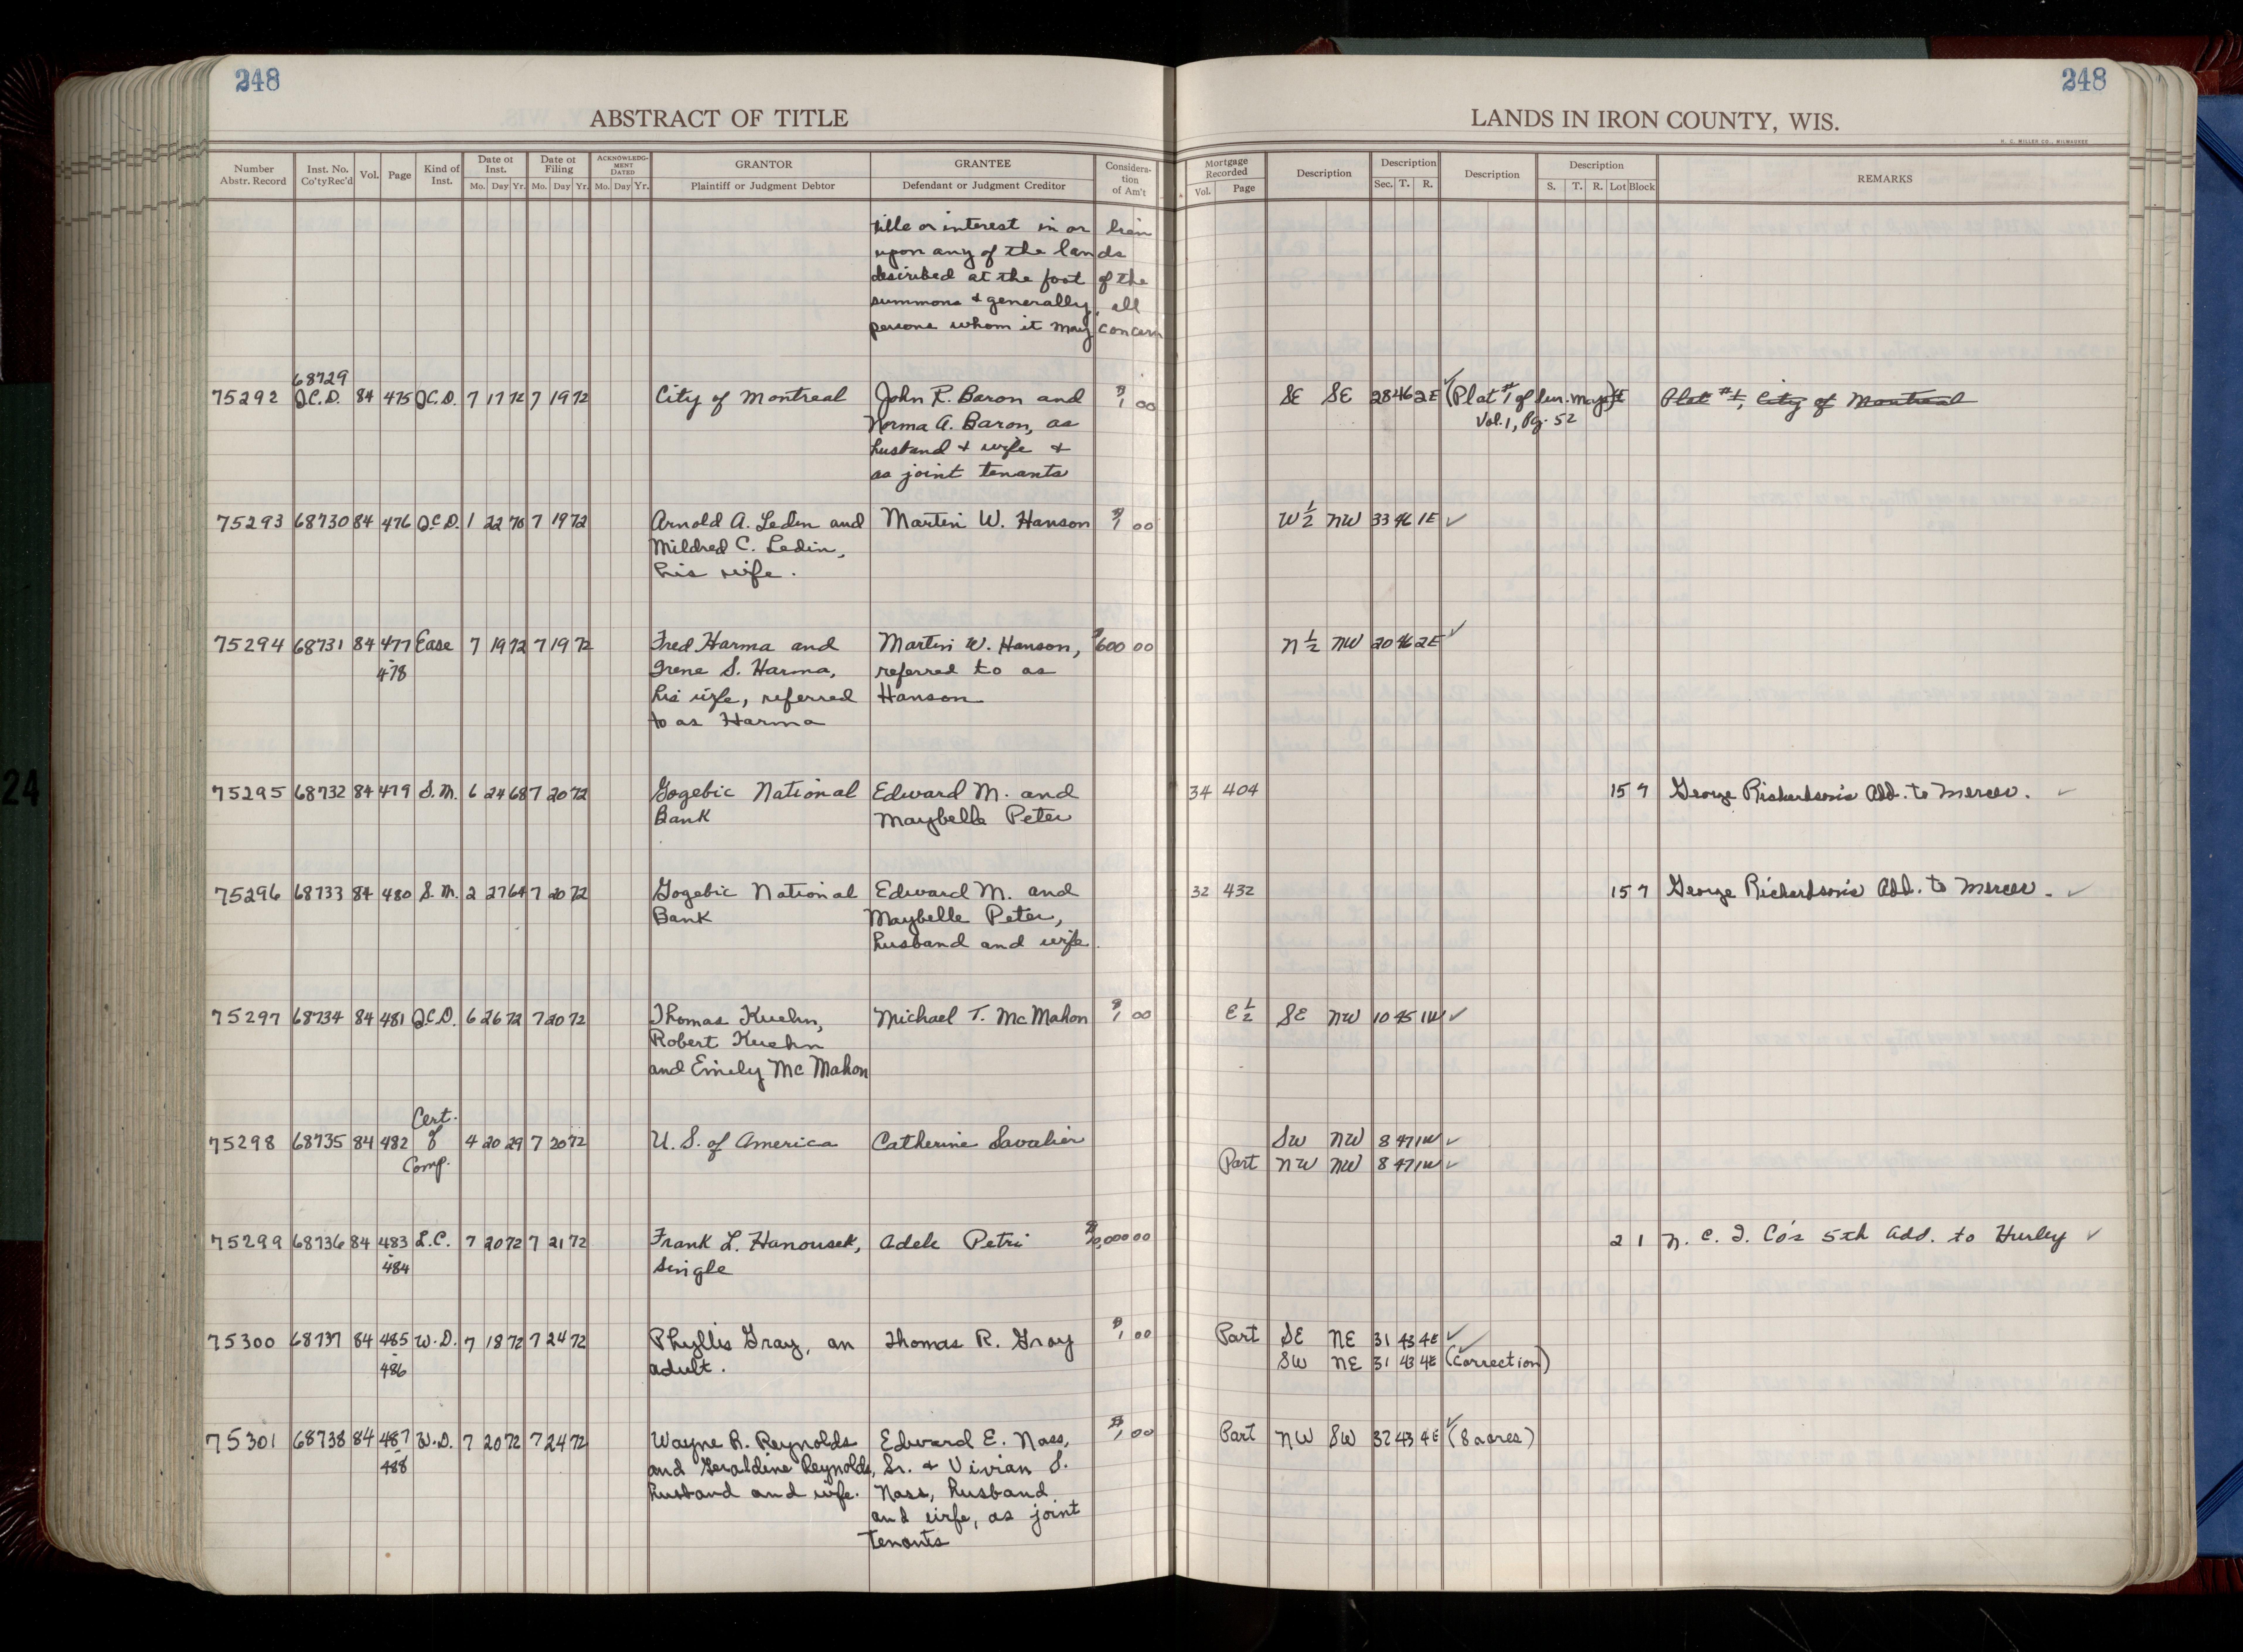 248
248
ABSTRACT OF TITLE
LANDS IN IRON COUNTY, WIS.
H. C. MILLER CO., MILWAUKEE
Number Abstr. Record | Inst. No. Co'tyRec'd | Vol. | Page | Kind of Inst. | Date of Inst. Mo. Day Yr. | Date of Filing Mo. Day Yr. | ACKNOWLEDGMENT DATED Mo. Day Yr. | GRANTOR Plaintiff or Judgment Debtor | GRANTEE Defendant or Judgment Creditor | Consideration of Am't | Mortgage Recorded Vol. Page | Description | Description Sec. T. R. | Description | Description S. T. R. Lot Block | REMARKS
title or interest in or lien
upon any of the lands
described at the foot of the
summons & generally, all
persons whom it may concern
68729
75292 Q.C.D. 84 475 Q.C.D. 7 17 72 7 19 72 City of Montreal John R. Baron and $1 00 SE SE 28 46 2E (Plat #1 of Plat #1, City of Montreal
Norma A. Baron, as Vol. 1, Pg. 52
husband & wife &
as joint tenants
75293 68730 84 476 Q.C.D. 1 22 70 7 19 72 Arnold A. Ledin and Martin W. Hanson $1 00 W 1/2 NW 33 46 1E ✓
Mildred C. Ledin,
his wife.
75294 68731 84 477 Ease 7 19 72 7 19 72 Fred Harma and Martin W. Hanson, $600 00 N 1/2 NW 20 46 2E ✓
- 478 Irene S. Harma, referred to as
his wife, referred Hanson
to as Harma
75295 68732 84 479 S.M. 6 24 68 7 20 72 Gogebic National Edward M. and 34 404 15 7 George Richardson's Add. to Mercer. ✓
Bank Maybelle Peter
75296 68733 84 480 S.M. 2 27 64 7 20 72 Gogebic National Edward M. and 32 432 15 7 George Richardson's Add. to Mercer. ✓
Bank Maybelle Peter,
husband and wife.
75297 68734 84 481 Q.C.D. 6 26 72 7 20 72 Thomas Kuehn, Michael T. McMahon $1 00 E 1/2 SE NW 10 45 1W ✓
Robert Kuehn
and Emily McMahon
Cert.
75298 68735 84 482 of 4 20 29 7 20 72 U. S. of America Catherine Savalier SW NW 8 47 1W ✓
Comp. Part NW NW 8 47 1W ✓
75299 68736 84 483 L.C. 7 20 72 7 21 72 Frank L. Hanousek, Adele Petri 2 1 N. C. I. Co's 5th Add. to Hurley ✓
- 484 single
75300 68737 84 485 W.D. 7 18 72 7 24 72 Phyllis Gray, an Thomas R. Gray $1 00 Part SE NE 31 43 4E ✓
- 486 adult. SW NE 31 43 4E (Correction)
75301 68738 84 487 W.D. 7 20 72 7 24 72 Wayne R. Reynolds Edward E. Nass, $1 00 Part NW SW 32 43 4E (8 acres)
- 488 and Geraldine Reynolds, Sr. & Vivian S.
husband and wife. Nass, husband
and wife, as joint
tenants
24